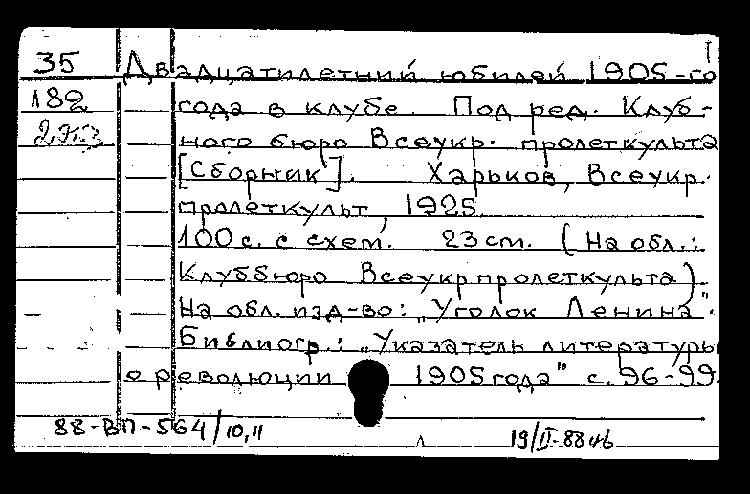 35 Двадцатилетний юбилей 1905-го
182 года в клубе. Под ред. Клуб-
ного бюро Всеукр. пролеткульта
[Сборник]. Харьков, Всеукр.
пролеткульт, 1925.
100 с. с схем. 23 см. (На обл.:
Клуббюро Всеукрпролеткульта).
На обл. изд-во: "Уголок Ленина".
Библиогр.: "Указатель литературы
о революции 1905 года" с. 96-99.
88-ВП-564/10,11 19/II-88